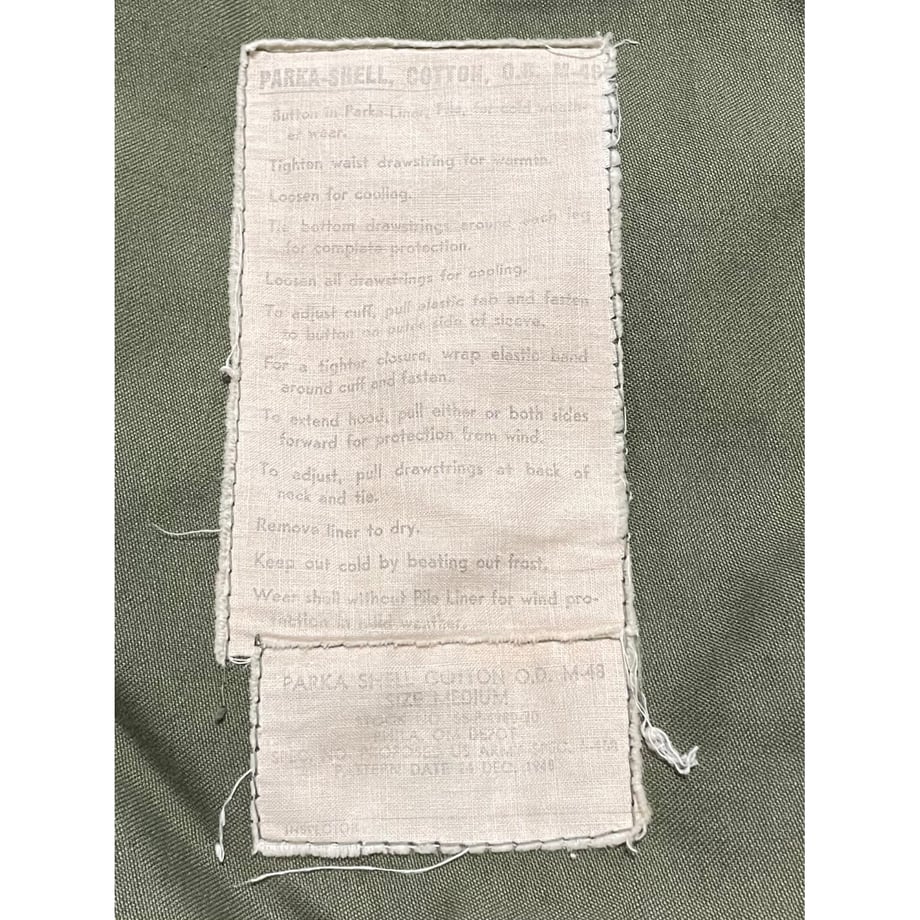 PARKA-SHELL, COTTON, O.D. M-48
Button in Parka-Liner, Pile, for cold weath-
er wear.
Tighten waist drawstring for warmth.
Loosen for cooling.
Tie bottom drawstrings around each leg
for complete protection.
Loosen all drawstrings for cooling.
To adjust cuff, pull elastic tab and fasten
to button on outer side of sleeve.
For a tighter closure, wrap elastic band
around cuff and fasten.
To extend hood, pull either or both sides
forward for protection from wind.
To adjust, pull drawstrings at back of
neck and tie.
Remove liner to dry.
Keep out cold by beating out frost.
Wear shell without Pile Liner for wind pro-
tection in cold weather.
PARKA SHELL COTTON O.D. M-48
SIZE MEDIUM
STOCK NO.
PHILA. QM DEPOT
SPEC. NO. US ARMY SPEC.
PATTERN DATE 14 DEC. 1948
INSPECTOR